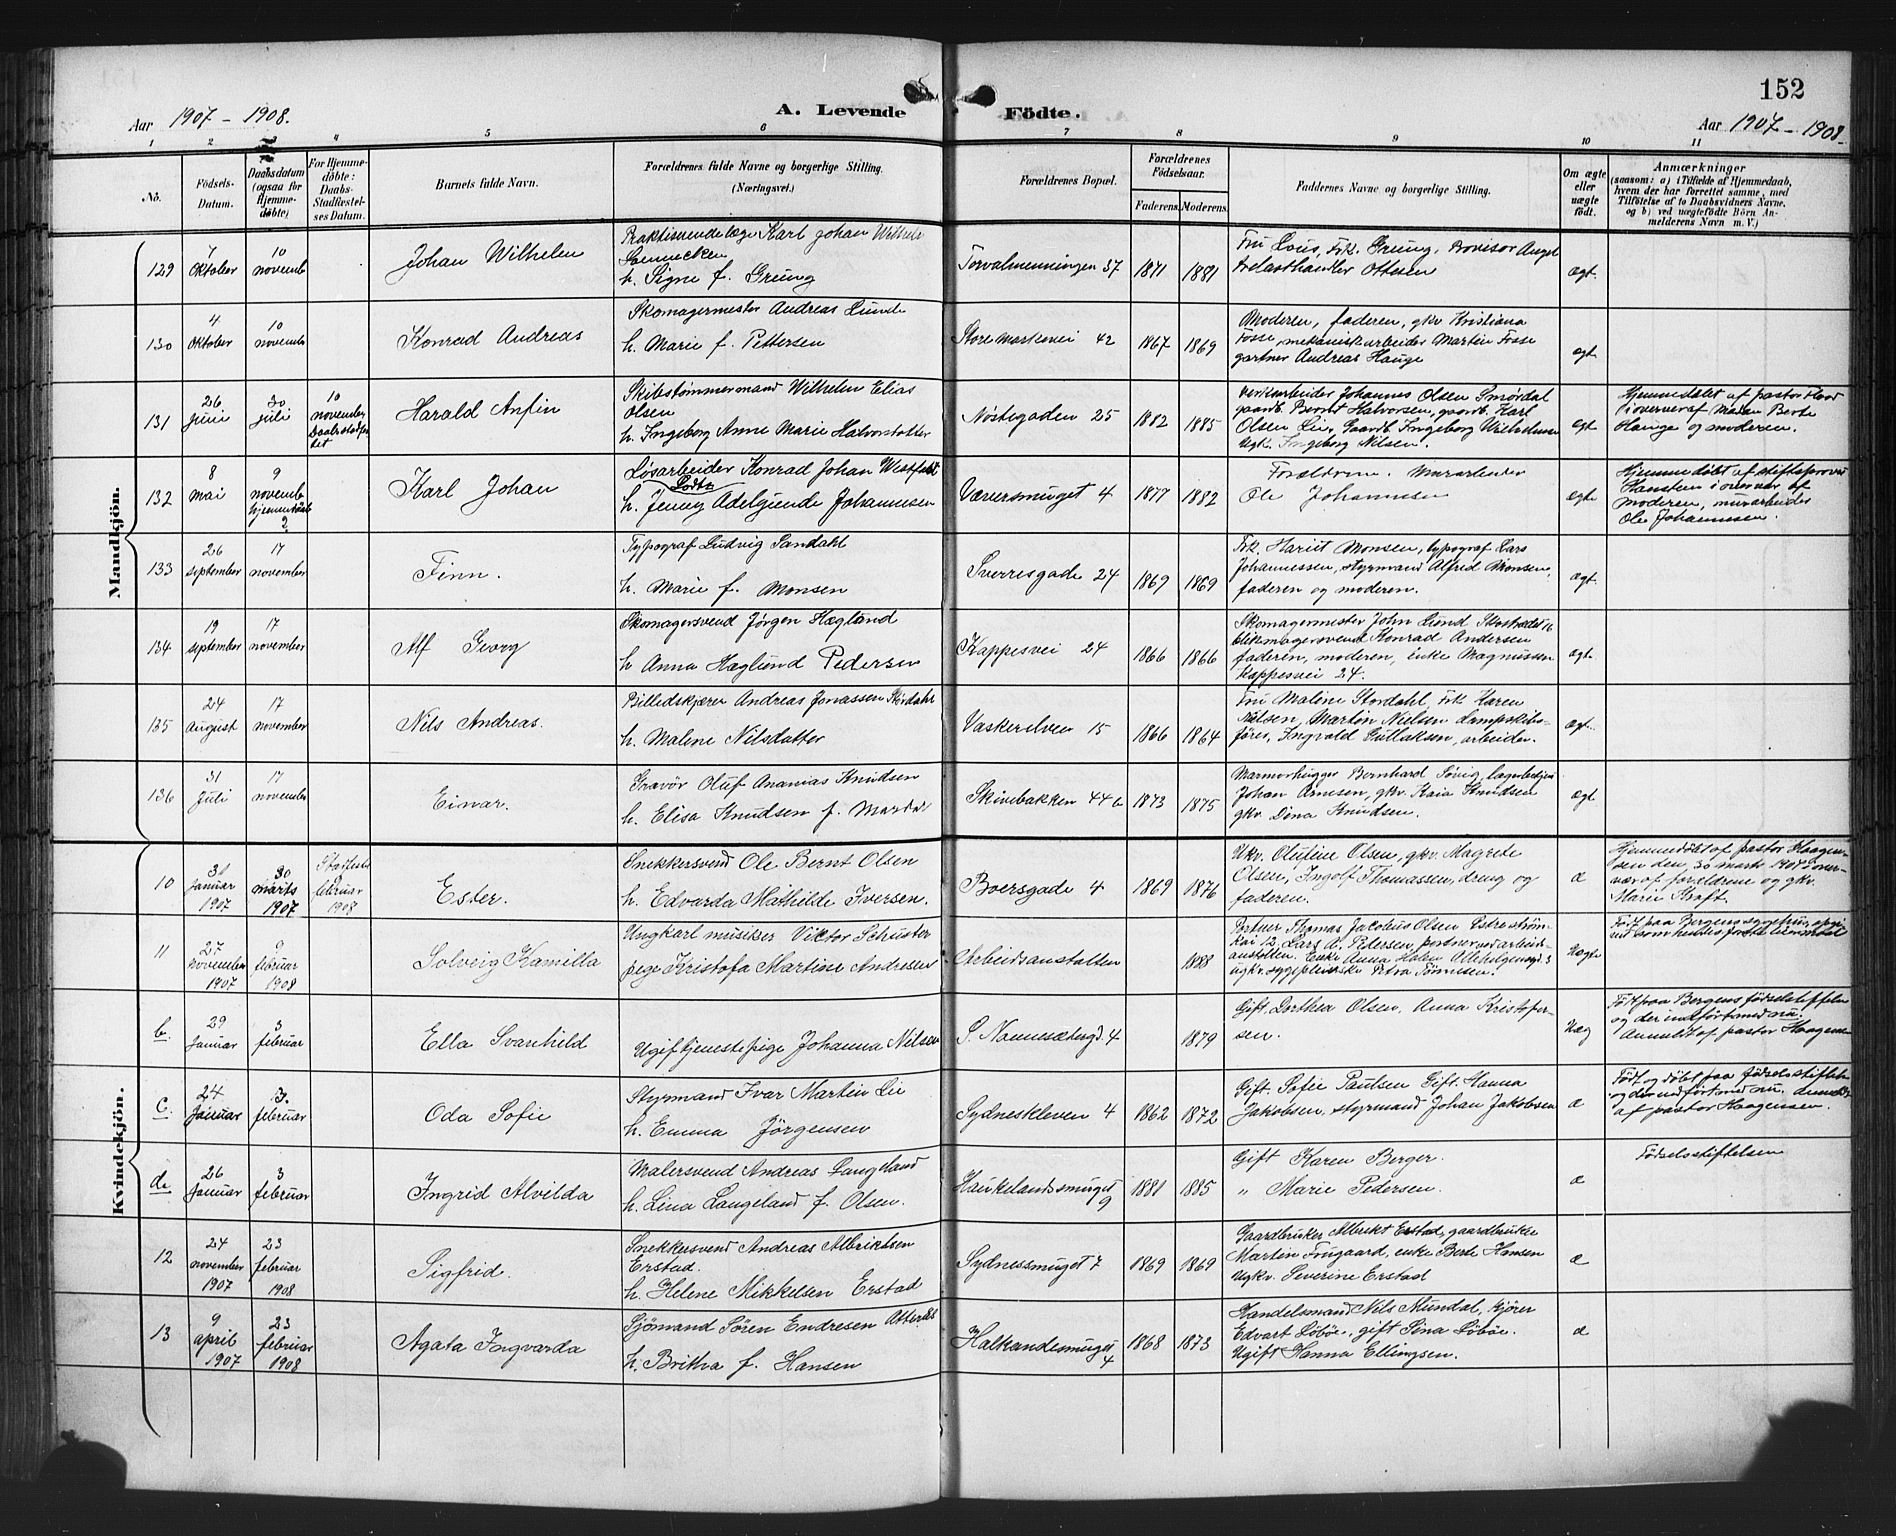 152
Aar 1907 - 1908.
A. Levende Födte.
Aar 1907 - 1908
1 2 3 4 5 6 7 8 9 10 11
No.
Födsels-Datum.
Daabsdatum (ogsaa for Hjemmedöbte)
For Hjemmedöbte: Daabs-Stadfæstelses Datum.
Barnets fulde Navn.
Forældrenes fulde Navne og borgerlige Stilling. (Næringsvei.)
Forældrenes Bopæl.
Forældrenes Födselsaar.
Faderens. Moderens.
Faddernes Navne og borgerlige Stilling.
Om ægte eller uægte födt.
Anmærkninger
(saasom: a) i Tilfælde af Hjemmedaab, hvem der har forrettet samme, med Tilföielse af to Daabsvidners Navne, og b) ved uægtefödte Börn Anmelderens Navn m. V.)
Mandkjön.
129 7 oktober 10 novemb Johan Wilhelm
Praktiserendelæge Karl Johan Wilhelm
Sonnecken
h. Signe f. Grung
Torvalmenningen 37 1871 1881
Fru Louis, Frk. Grung, Provisor Angel
Ottesen
ægt.
130 4 oktober 10 novemb Konrad Andreas
Skomagermester Andreas Lunde
h. Marie f. Pettersen
Store markevei 42 1867 1869
Moderen, faderen, gkv Kristiana
Fosse, mekaniskarbeider Martin Fosse
gartner Andreas Hauge
ægt
131 26 juni 30 juli 10 november Harald Anfin
Skibstømmermand Wilhelm Elias
Olsen
h. Ingeborg Anne Marie Halvorsdatter
Nøstegaden 25 1882 1885
Verksarbeider Johannes Olsen Smørdal
gaardb. Bernt Halvorsen, gaardb. Karl
Olsen Lie, Gaardb. Ingeborg Wilhelmsen
Ugk. Ingeborg Nilsen.
ægt
Hjemmedøbt af pastor
i overvær af Madam Berte
Hauge og moderen.
132 8 mai 9 novemb hjemmedøbt 2 Karl Johan
Løsarbeider Konrad Johan Westfeldt
h. Jenny Adelgunde Johannesen
Væversmuget 4 1877 1882
Forældrene. Murarbeider
Ole Johannesen
ægte
Hjemmedøbt af stiftsprovst
Hansteen i overvær af
moderen, murarbeider
Ole Johannesen.
133 26 september 17 november Finn.
Typograf Ludvig Sandahl
h. Marie f. Monsen
Sverresgade 24 1869 1869
Frk. Hariet Monsen, typograf Lars
Johannessen, styrmand Alfred Monsen,
faderen og moderen.
ægt.
134 19 september 17 november Alf Georg
Skomagersvend Jørgen Hæglund
h Anna Hæglund Pedersen
Kappesvei 24 1866 1866
Skomagermester John Lund
Konrad Andersen
faderen, moderen, enke Magnussen
Kappesvei 24.
ægt.
135 24 august 17 november Nils Andreas.
Billedskjærer Andreas Jonassen Stordahl
h. Malene Nilsdatter
Vaskerelven 15 1866 1864
Fru Malene Stordahl, Frk Karen
Nilsen, Martin Nielsen dampskibs-
fører, Ingvald Gullaksen, arbeider.
ægt.
136 31 juli 17 november Einar.
Gravör Oluf Ananias Knudsen
h. Elisa Knudsen f.
Skivebakken 44 b 1873 1875
Marmorhugger Bernhard Søvig,
Johan Arnesen, gkv. Kaia Knudsen
gkv. Dina Knudsen.
ægt
Kvindekjön.
10 31 januar 1907 30 marts 1907 februar 1908 Ester.
Snekkersvend Ole Bernt Olsen
h. Edvarda Mathilde Iversen.
Boersgade 4 1869 1876
Ukv. Olufine Olsen, gkv. Magrete
Olsen, Ingolf Thomassen, dreng og
faderen.
æ
Hjemmedøbt af pastor Haagen-
sen den 30 marts 1907 i over-
vær af forældrene og gkv.
Marie Kraft.
11 27 november 1907 9 februar 1908 Solveig Kamilla
Ungkarl musiker Viktor Schuster
pige Kristofa Martine Andresen
Arbeidsanstalten 1888
Portner Thomas Jacobus Olsen
12, Lars A. Petersen, portner ved arbeids-
anstalten. Enke Anna Holen
ugkv. sygepleierske Petra Tønnesen.
Uægte
b. 29 januar 3 februar Ella Svanhild
Ugift tjenestepige Johanna Nilsen
S. Nannesætergd. 4 1879
Gift. Dorthea Olsen, Anna Kristofer-
sen.
Uæg
Født paa Bergens fødselsstiftelse
og der indført med nu.
Anmeldt af pastor Haagensen
c. 24 januar 3. februar Oda Sofie
Styrmand Ivar Martin Lie
h. Emma Jørgensen
Sydneskleven 4 1862 1872
Gift. Sofie Paulsen Gift. Hanna
Jakobsen, styrmand Johan Jakobsen
æ
Født og døbt paa fødselsstiftelsen
og der indført med nu.
af pastor Haagensen.
d. 26 januar 3 februar Ingrid Alvilda
Malersvend Andreas Langeland
h. Lina Langeland f. Olsen.
Haukelandsmuget 9 1881 1885
Gift Karen Berger.
" Marie Pedersen.
æ
Fødselsstiftelsen
12 24 november 1907 23 februar 1908 Sigfrid.
Snekkersvend Andreas Albriktsen
Erstad.
h. Helene Mikkelsen Erstad
Sydnessmuget 7 1869 1869
Gaardbruker Albrikt Erstad, gaardbruker
Martin Frugaard, enke Berte Hansen
Ugkv. Severine Erstad
æ
13 9 april 1907 23 februar 1908 Agata Ingvarda
Sjömand Søren Endresen
h. Britha f. Hansen
Halkandesmuget 4 1868 1873
Handelsmand Nils Mundal, kjører
Edvart Løbøe, gift Sina Løbøe.
Ugift Hanna Ellingsen.
æ